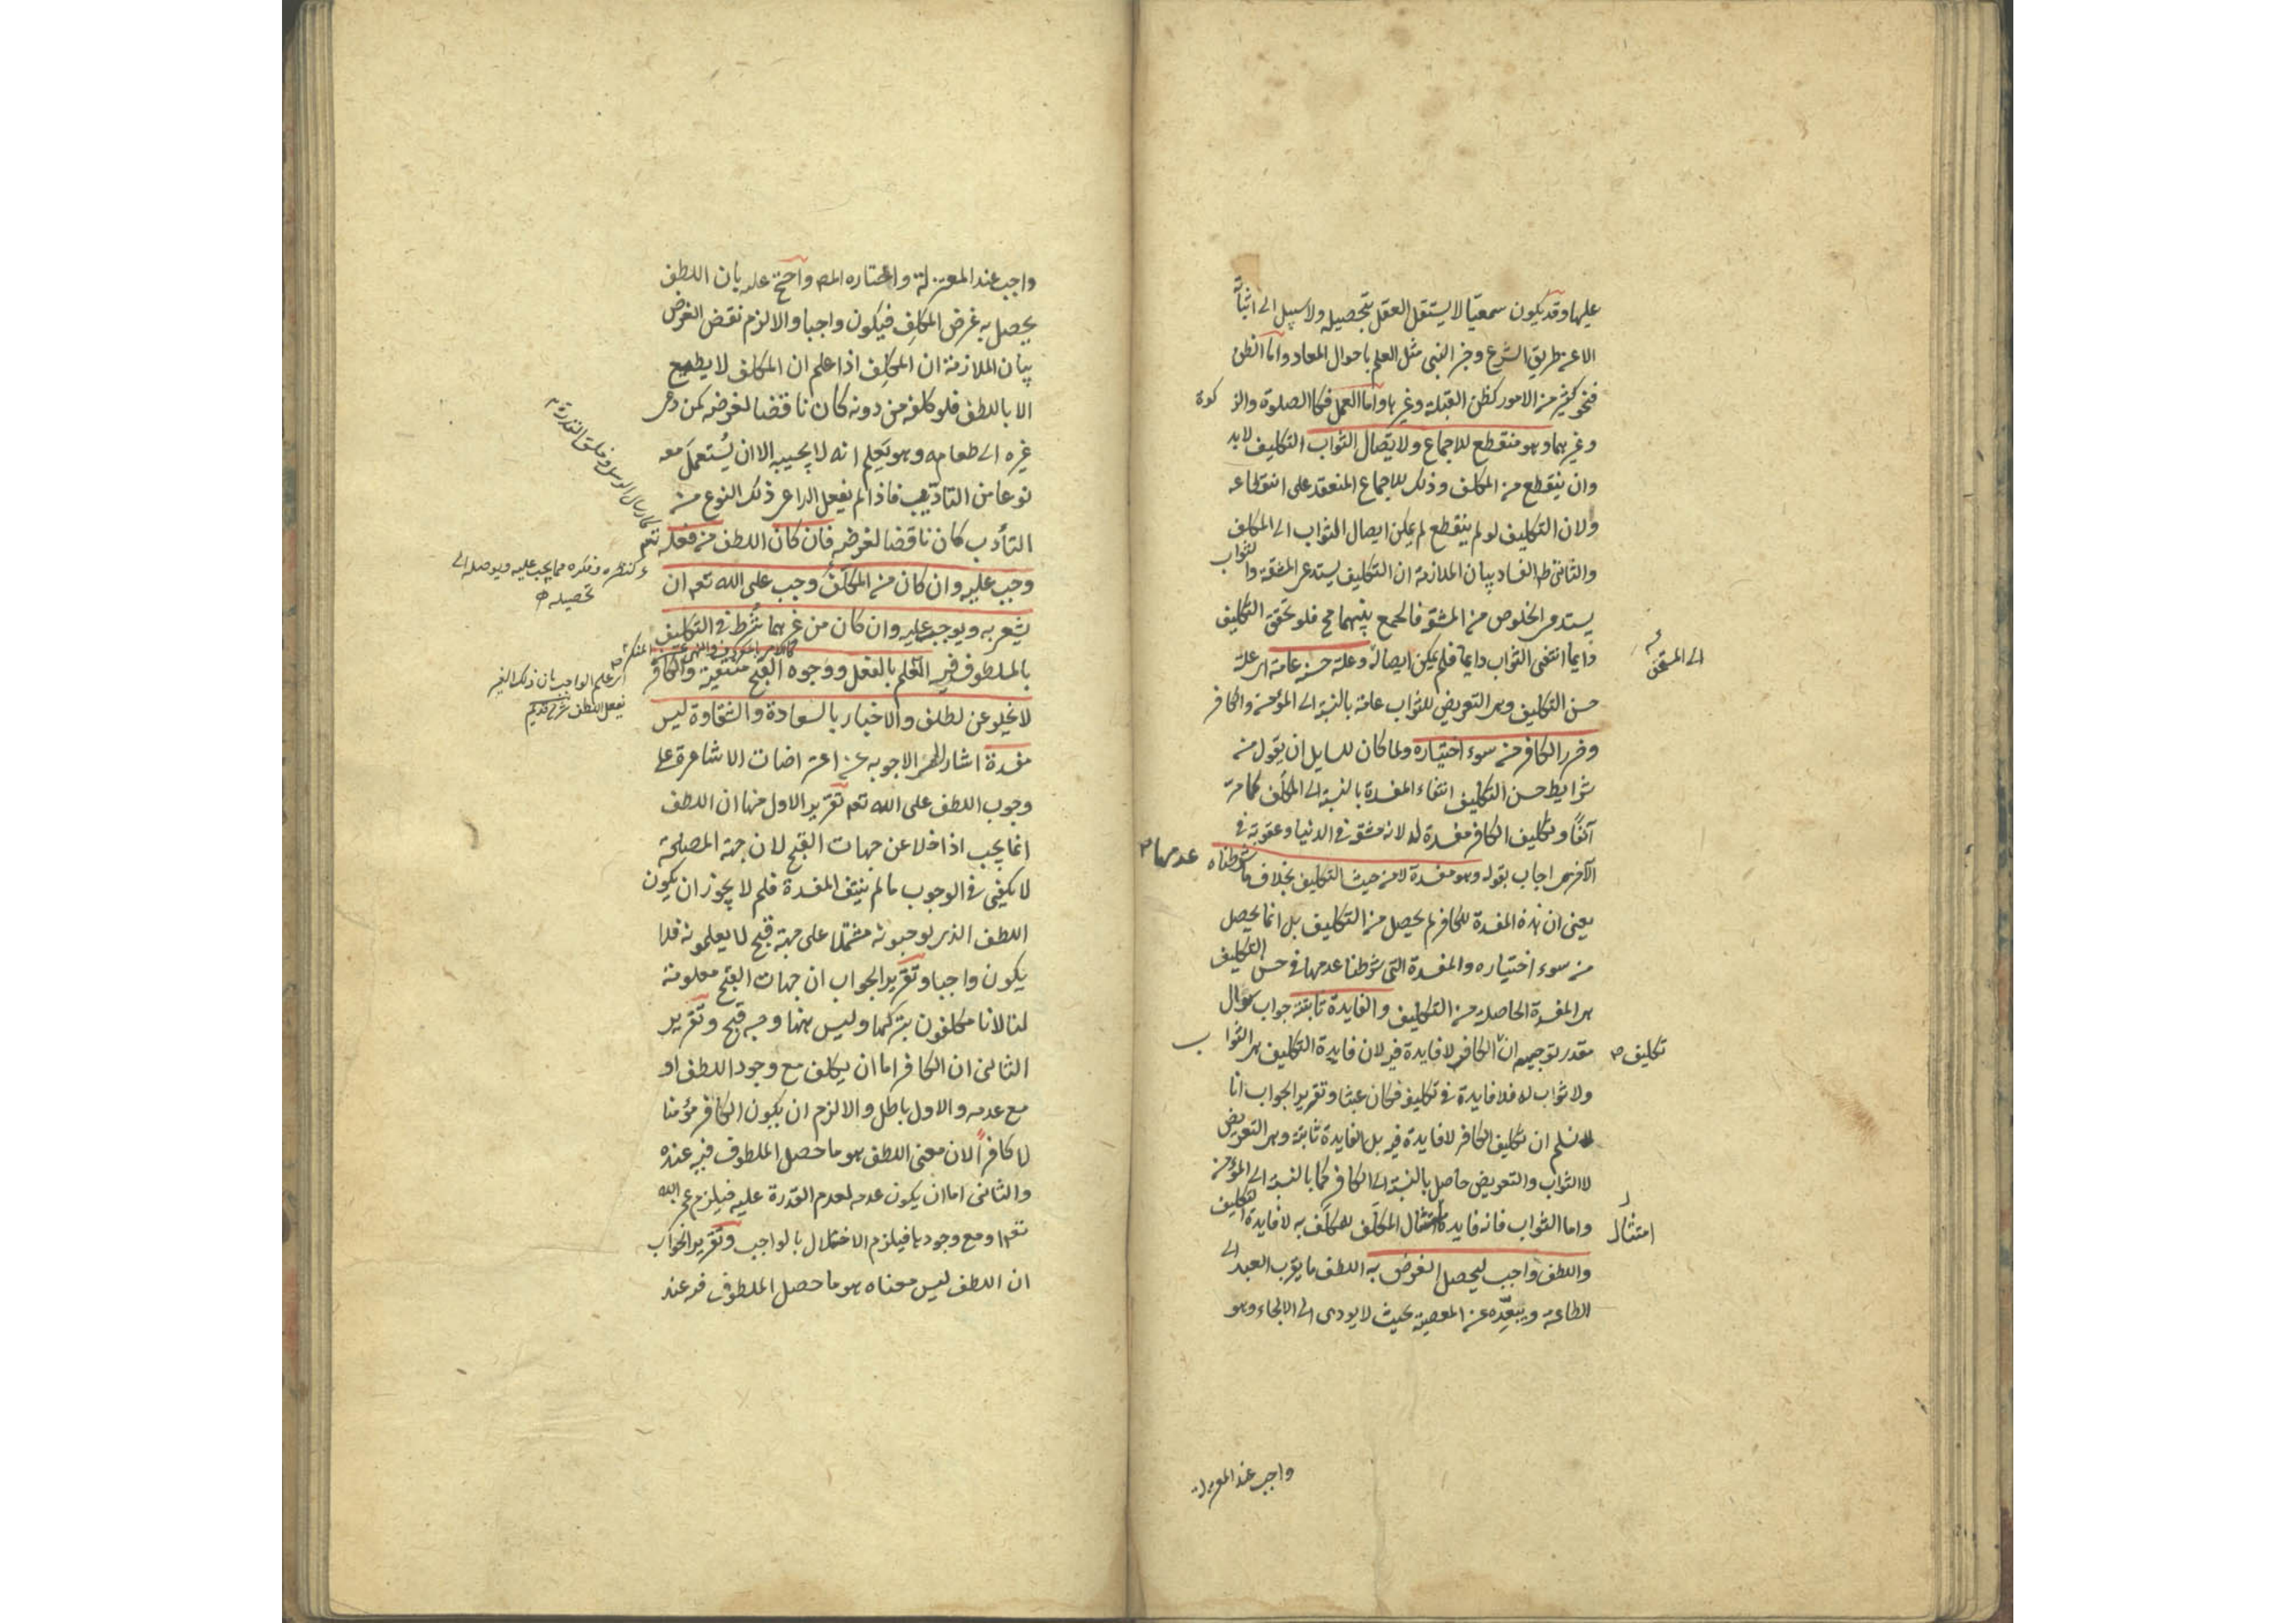 عليها وقد يكون سمعيا لا يستقل العقل بتحصيله ولا سبيل الى اثباته
الا عن طريق الشرع وخبر النبي مثل العلم باحوال المعاد واما الظن
فنحو كثير من الامور كظن القبلة وغيرها واما العمل فكالصلوة والزكوة
وغيرهما وهو منقطع للاجماع ولايصال الثواب التكليف لابد
وان ينقطع من المكلف وذلك للاجماع المنعقد على انقطاعه
ولان التكليف لو لم ينقطع لم يمكن ايصال الثواب الى المكلف
والثاني ظ الفساد بيان الملازمة ان التكليف يستدعى المشقة والثواب
يستدعى الخلوص من المشقة فالجمع بينهما مح فلو تحقق التكليف
دايما انتفى الثواب دايما فلم يمكن ايصاله وعلة حسنه عامة اى علة
الى المستحق
حسن التكليف وهى التعريض للثواب عامة بالنسبة الى المؤمن والكافر
وضرر الكافر من سوء اختياره ولما كان للسايل ان يقول من
شرايط حسن التكليف انتفاء المفسدة بالنسبة الى المكلف كما مرت
آنفا وتكليف الكافر مفسدة له لانه مشقة في الدنيا وعقوبة في
الآخرة اجاب بقوله وهو مفسدة لا من حيث التكليف بخلاف ما شرطناه
عدمها
يعنى ان هذه المفسدة للكافر لم يحصل من التكليف بل انما يحصل
من سوء اختياره والمفسدة التى شرطنا عدمها في حسن التكليف
هى المفسدة الحاصلة من التكليف والفايدة ثابتة جواب سؤال
مقدر توجيهه ان الكافر لا فايدة فيه لان فايدة التكليف هى الثواب
تكليف
ولا ثواب له فلا فايدة في تكليفه فكان عبثا وتقرير الجواب انا
لا نسلم ان تكليف الكافر لا فايدة فيه بل الفايدة ثابتة وهى التعريض
لا الثواب والتعريض حاصل بالنسبة الى الكافر كما بالنسبة الى المؤمن
واما الثواب فانه فايدة امتثال المكلف للمكلف به لا فايدة التكليف
امتثال
واللطف واجب ليحصل الغرض به اللطف ما يقرب العبد الى
الطاعة ويبعده عن المعصية بحيث لا يودى الى الالجاء وهو
واجب عند المعتزلة
واجب عند المعتزلة واختاره المصـ واحتج عليه بان اللطف
يحصل به غرض المكلف فيكون واجبا والا لزم نقض الغرض
بيان الملازمة ان المكلف اذا علم ان المكلف لا يطيع
الا باللطف فلو كلفه من دونه كان ناقضا لغرضه كمن دعى
غيره الى طعامه وهو يعلم انه لا يجيبه الا ان يستعمل معه
نوعا من التاديب فاذا لم يفعل الداعى ذلك النوع من
التأدب كان ناقضا لغرضه فان كان اللطف من فعله تعم
وجب عليه وان كان من المكلف وجب على الله تعم ان
كنظره وفكره مما يجب عليه ويوصله الى
تحصيله
يشعر به ويوجب عليه وان كان من غيرهما شرط في التكليف
بالملطوف فيه العلم بالفعل ووجوه القبح منتفية والكافر
اى علم الواجب بان ذلك الغير
يفعل اللطف
لا يخلو عن لطف والاخبار بالسعادة والشقاوة ليس
مفسدة اشار الى الاجوبه عن اعتراضات الاشاعرة على
وجوب اللطف على الله تعم تقرير الاول منها ان اللطف
انما يجب اذا خلا عن جهات القبح لان جهة المصلحة
لا يكفى في الوجوب ما لم ينتف المفسدة فلم لا يجوز ان يكون
اللطف الذى يوجبونه مشتملا على جهة قبح لا يعلمونه فلا
يكون واجبا وتقرير الجواب ان جهات القبح معلومة
لنا لانا مكلفون بتركها وليس هنا وجه قبح وتقرير
الثانى ان الكافر اما ان يكلف مع وجود اللطف او
مع عدمه والاول باطل والا لزم ان يكون الكافر مؤمنا
لا كافرا لان معنى اللطف هو ما حصل الملطوف فيه عنده
والثانى اما ان يكون عدمه لعدم القدرة عليه فيلزم عجز الله
تعم او مع وجودها فيلزم الاخلال بالواجب وتقرير الجواب
ان اللطف ليس معناه هو ما حصل الملطوف فيه عند